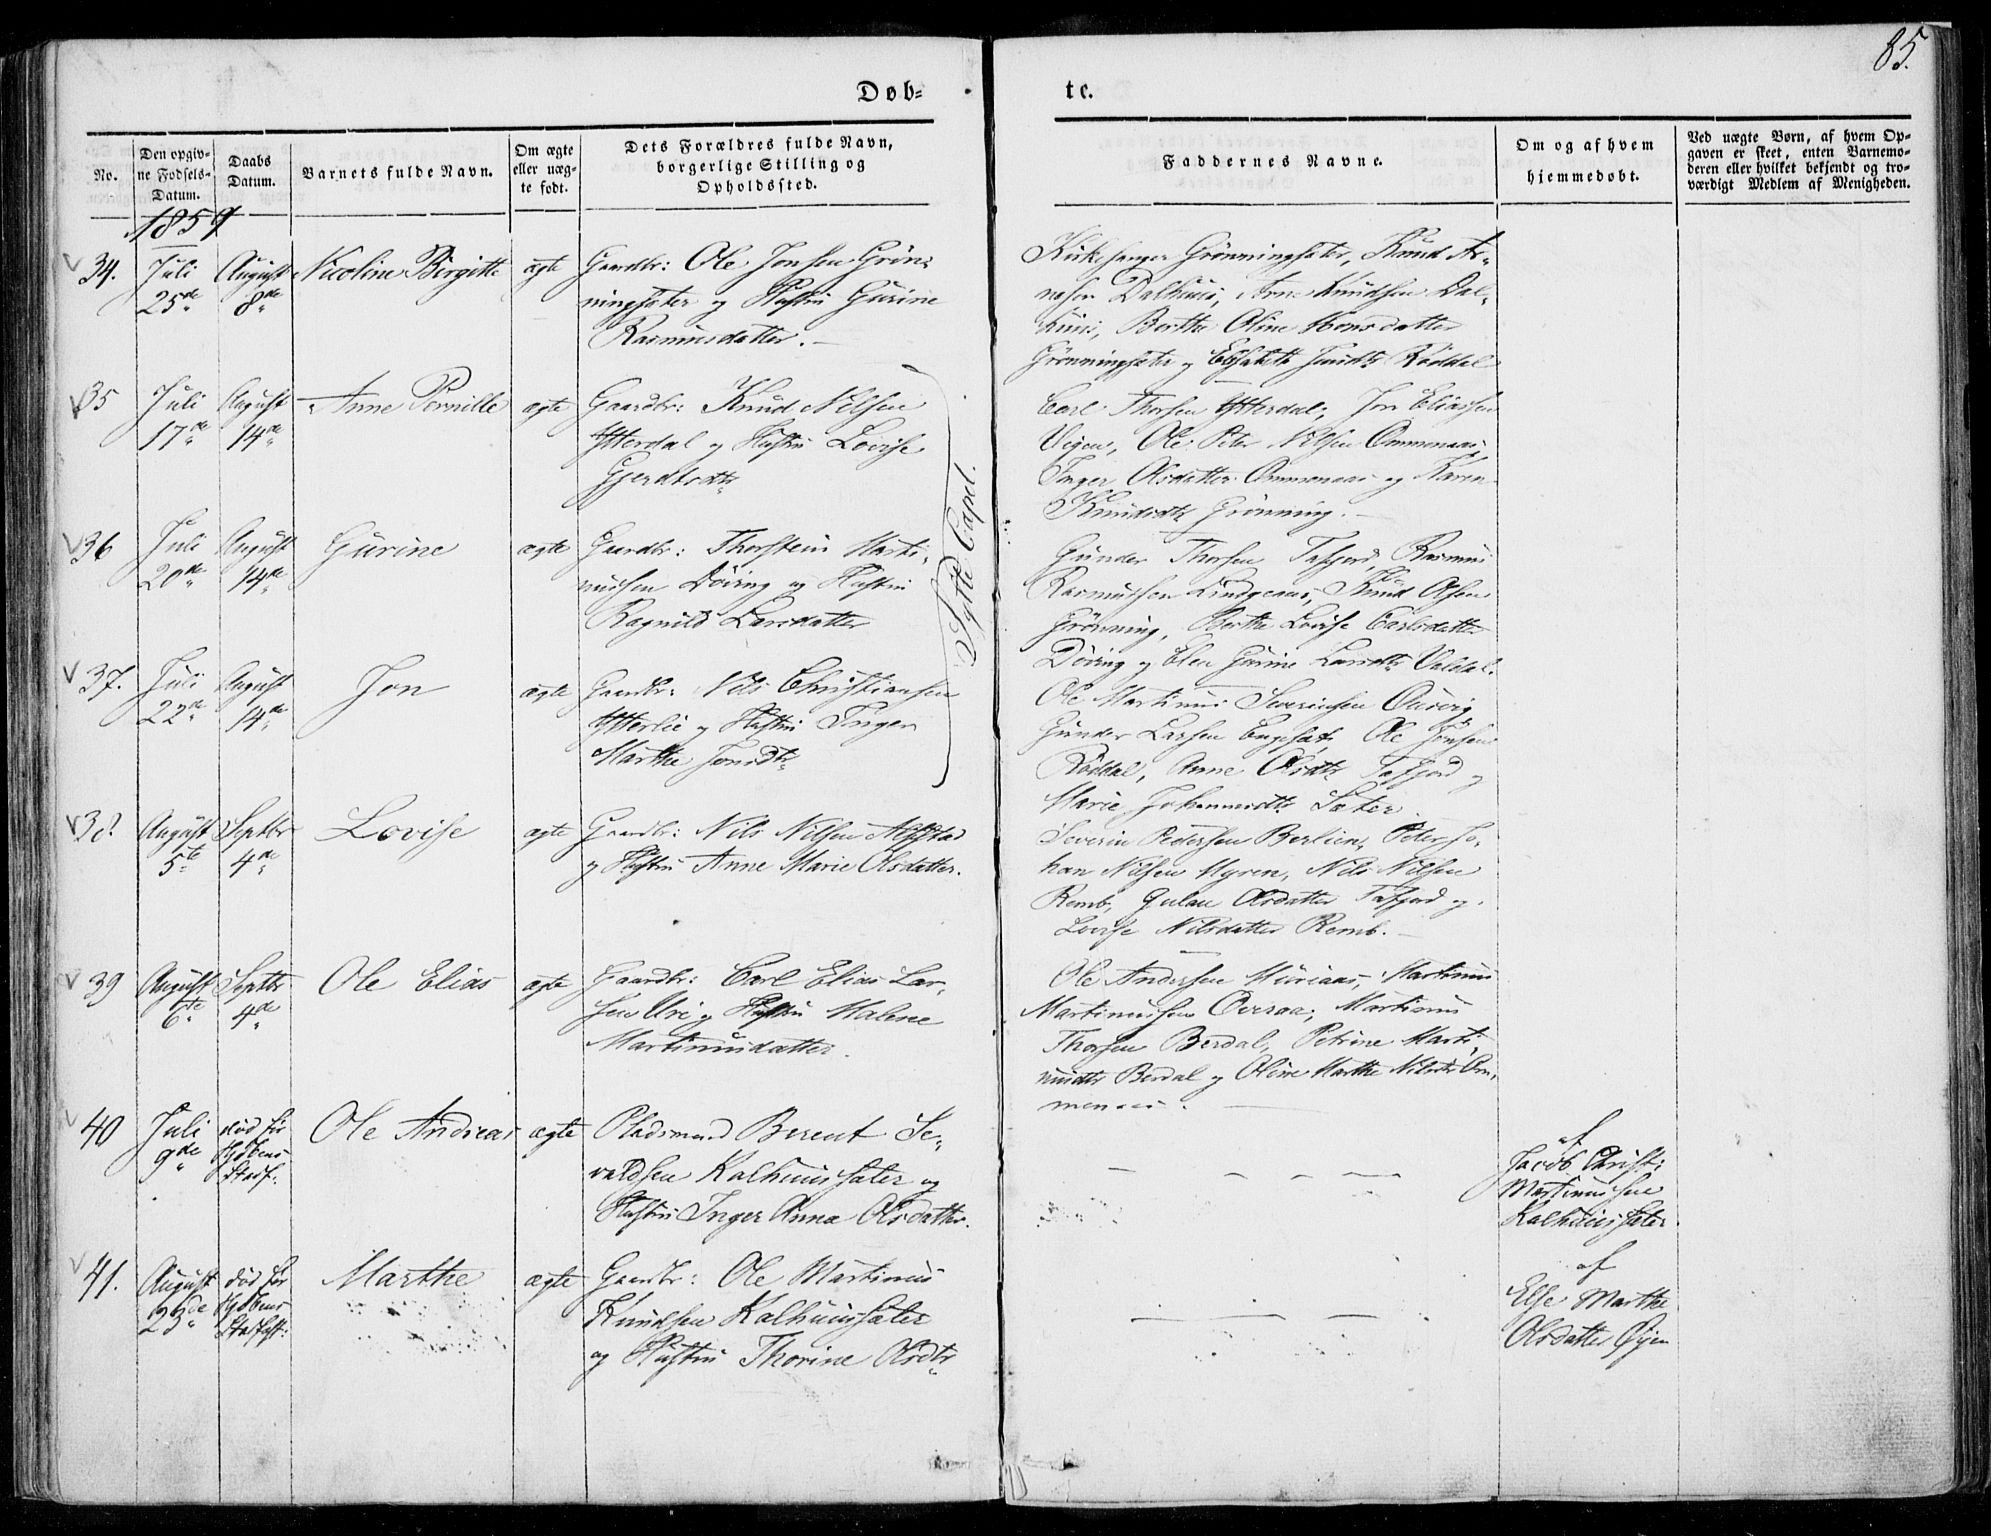 85.
Døb=
te.
No.
Den opgiv-
ne Fødsels-
Datum.
Daabs
Datum.
Barnets fulde Navn.
Om ægte
eller uæg-
te født.
Dets Forældres fulde Navn,
borgerlige Stilling og
Opholdssted.
Faddernes Navne.
Om og af hvem
hjemmedøbt.
Ved uægte Børn, af hvem Op-
gaven er skeet, enten Barnemo-
deren eller hvilket bekjendt og tro-
værdigt Medlem af Menigheden.
1859
34.
Juli
25de
August
8de
Nicoline Birgitte
ægte
Gaardbr: Ole Jonsen Grøn-
ningsæter og Hustru Gurine
Rasmusdatter.
Kirkesanger Grønningsæter, Knud Ar-
nesen Dalhuus, Arne Knudsen Dal-
huus, Berthe Oline Monsdatter
Grønningsæter og Elisabeth Røddal
35
Juli
17de
August
14de
Anne Pernille
ægte
Gaardbr: Knud Nilsen
Ytterdal og Hustru Lovise
Gjerdtsdtr
Carl Thorsen Ytterdal, Jon Eliassen
Ole Peter Nilsen Ommenaas,
Inger Olsdatter Ommenaas og Karen
Knudsdtr Grønning.
Sylte Capel.
36
Juli
20de
August
14de
Gurine
ægte
Gaardbr: Thorstein Marti-
nussen Døving og Hustru
Ragnild Larsdatter
Gunder Thorsen Tafjord, Rasmus
Rasmussen Knud Olsen
Grønning, Berthe Lovise Carlsdatter
Døving og Elen Gurine Larsdtr Valdal.
37.
Juli
22de
August
14de
Jon
ægte
Gaardbr: Nils Christiansen
Ytterlie og Hustru Inger
Marthe Jonsdtr
Ole Martinus Severinsen
Gunder Larsen Ole Jonsen
Røddal, Anne Olsdtr Tafjord og
Marie Johannesdtr Sæter.
38.
August
5te
Septbr
4de
Lovise
ægte
Gaardbr: Nils Nilsen Alstad
og Hustru Anne Marie Olsdatter.
Severin Pedersen Berlien, Peter Jo-
han Nilsen Myren, Nils Nilsen
Remb, Gulau Olsdatter Tafjord og
Lovise Nilsdatter Remb.
39
August
6te
Septbr
4de
Ole Elias
ægte
Gaardbr: Carl Elias Lar-
sen Uri og Hustru Malene
Martinusdatter.
Ole Andersen Muriaas, Martinus
Martinussen Overaa, Martinus
Thorsen Berdal, Petrine Marti-
nusdtr Berdal og Oline Marthe Nilsdtr Om-
menaas.
40
Juli
9de
død før
Hjdbens
Stadf.
Ole Andreas
ægte
Pladsmand Berent Se-
valdsen Kalhuussæter og
Hustru Inger Anna Olsdatter.
af
Jacob Christ:
Martinussen
Kalhuussæter
41.
August
25de
død før
Hjdbens
Stadfst:
Marthe
ægte
Gaardbr: Ole Martinus
Knudsen Kalhuussæter
og Hustru Thorine Olsdtr
af
Else Marthe
Olsdatter Øyen